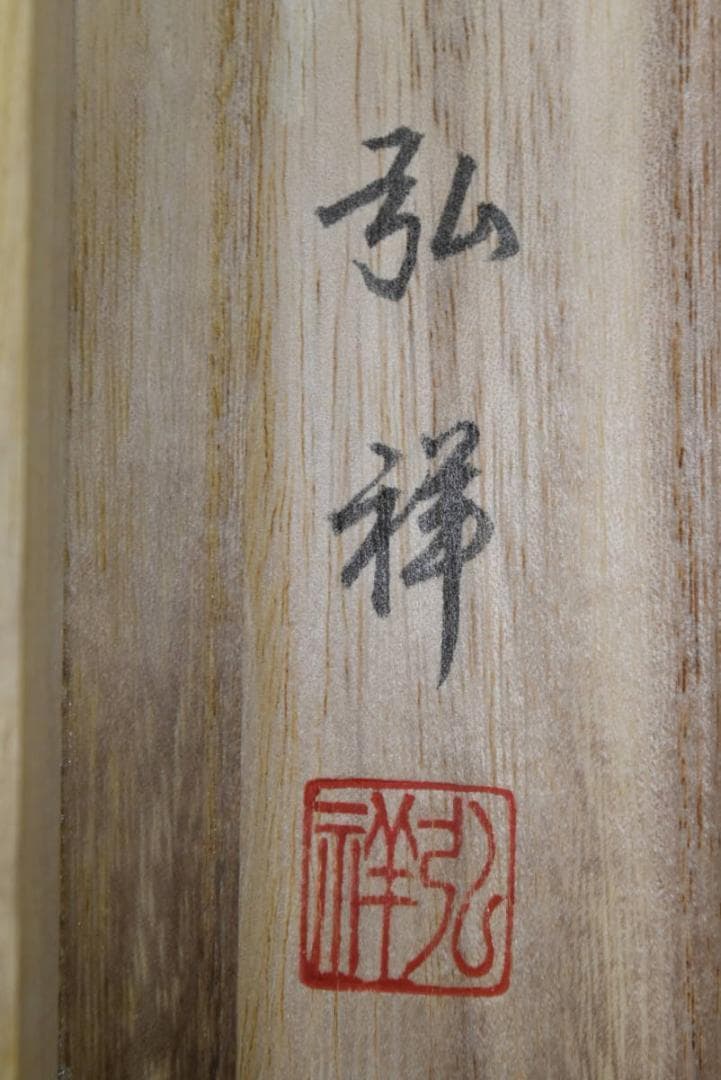 弘祥
弘祥